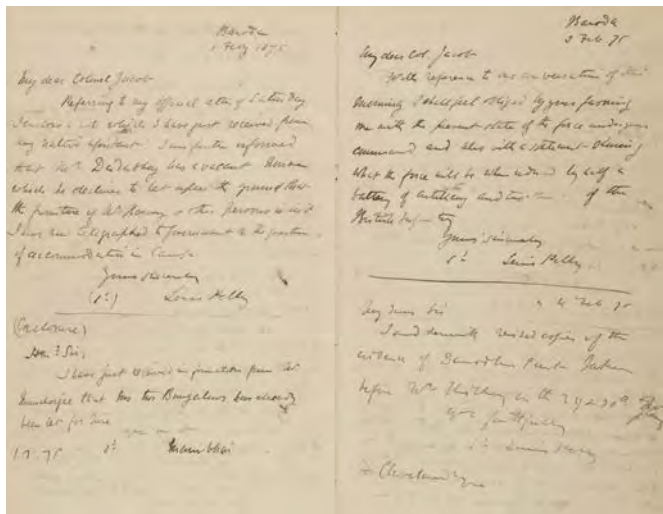 Baroda
1 Feby 1875
My dear Colonel Jacob
Referring to my official letter of Saturday
I enclose a note which I have just received from
my native assistant. I am further informed
that Mr. Dadabhoy has a vacant house
which he declines to let upon the ground that
the furniture of Mr. & other persons is in it
I have now telegraphed to Government on the question
of accommodation in Camp.
Yours sincerely
(Sd.) Lewis Pelly
(Enclosure)
Hon. Sir,
I have just received information from
that his two Bungalows has already
been let for
1.2.75 Sd. Manibhai
Baroda
2 Feb. 75
My dear Col. Jacob
With reference to our conversation of this
morning I shall feel obliged by your favoring
me with the present state of the force under your
command and also with a statement showing
what the force will be when reduced by half a
battery of artillery and of the
British Infantry
Yours sincerely
Sd. Lewis Pelly
4 Feb 75
My dear Sir
I send herewith revised copies of the
evidence of Damodhur Punt
before Mr. on the 29 & 30th
yrs faithfully
Sd. Lewis Pelly
Cleveland Esqre